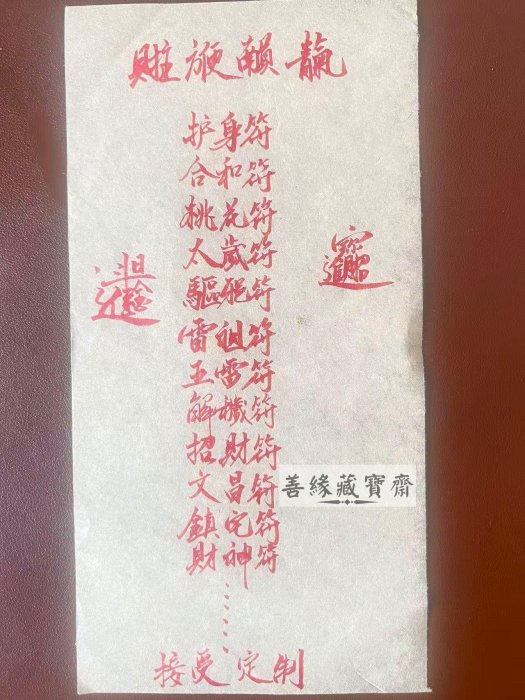 护身符
合和符
桃花符
太歲符
驅死符
雷祖符
五雷符
解穢符
招財符
文昌符
鎮宅符
財神符
……
接受定制
善緣藏寶齋